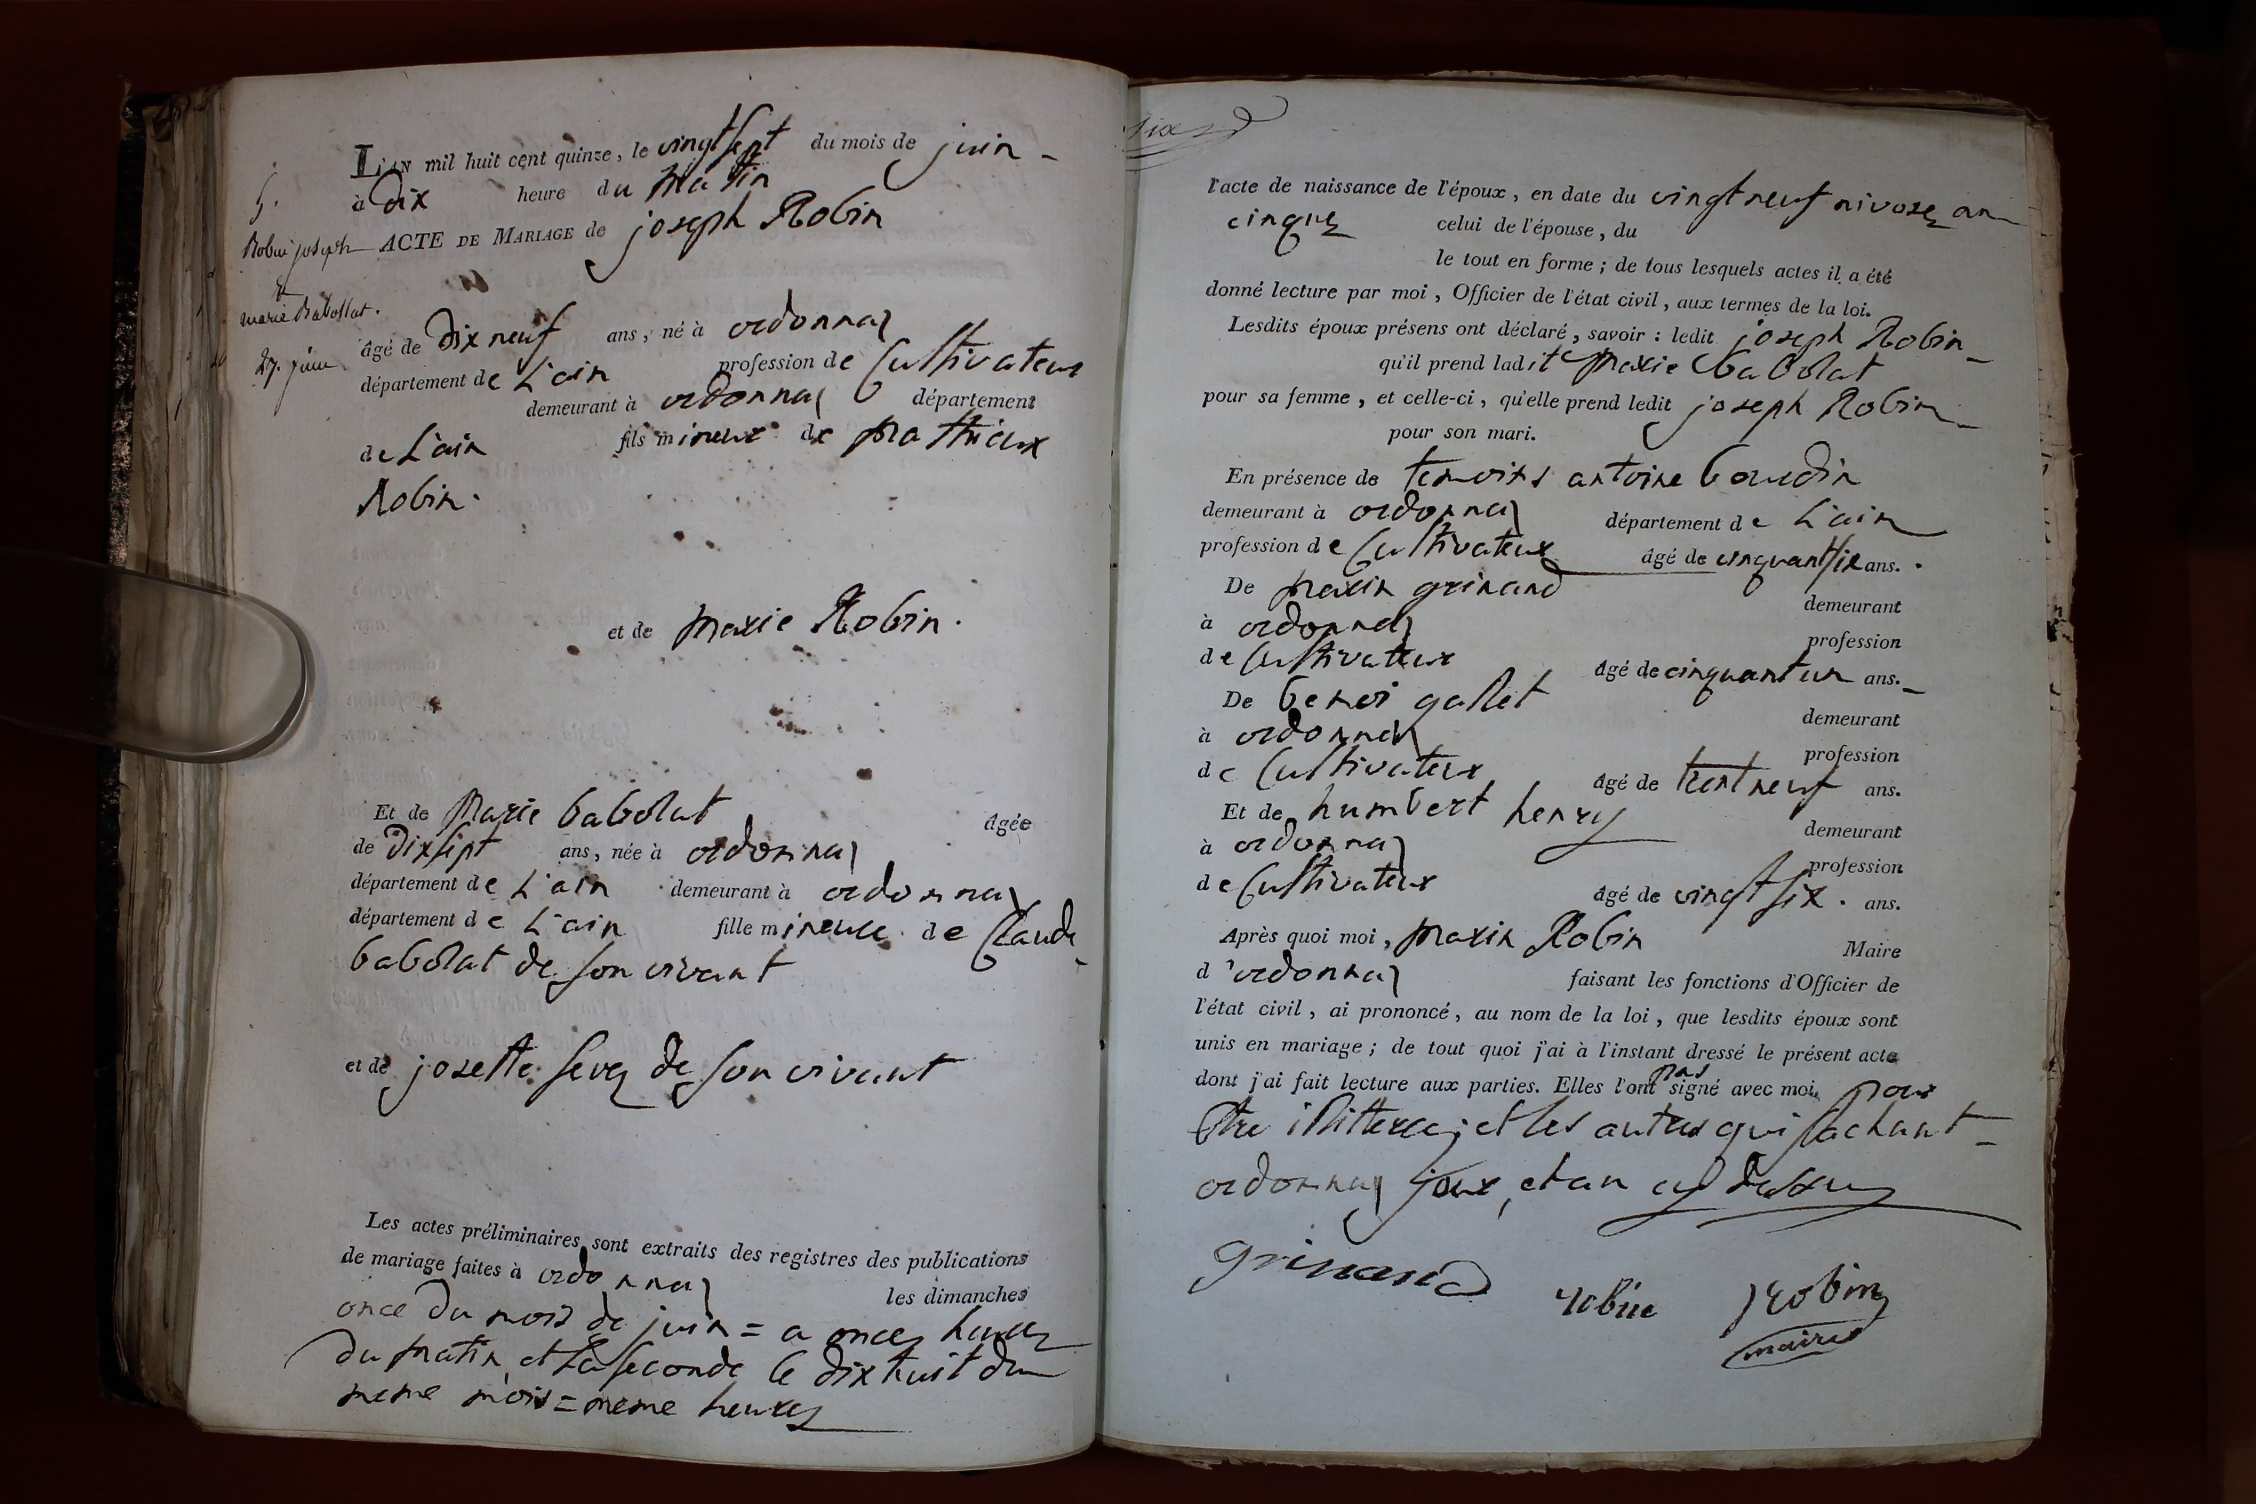 L'AN mil huit cent quinze, le vingt sept du mois de juin
à dix heure du matin
5.
Robin joseph
&
marie Babollat.
27. juin
ACTE DE MARIAGE de joseph Robin
âgé de dix neuf ans, né à ordonnaz
département de L'ain profession de Cultivateur
demeurant à ordonnaz département
de L'ain fils mineur de mathieux
Robin.
et de marie Robin.
Et de Marie babolat âgée
de dixsept ans, née à ordonnaz
département de L'ain demeurant à ordonnaz
département de L'ain fille mineure de Claude
babolat de son vivant
et de josette sevez de son vivant
Les actes préliminaires sont extraits des registres des publications
de mariage faites à ordonnaz les dimanches
once du mois de juin = a onces heures
du matin et la seconde le dixhuit du
meme mois = meme heures
l'acte de naissance de l'époux, en date du vingt neuf nivose an
cinque celui de l'épouse, du
le tout en forme; de tous lesquels actes il a été
donné lecture par moi, Officier de l'état civil, aux termes de la loi.
Lesdits époux présens ont déclaré, savoir: ledit joseph Robin
qu'il prend ladit marie babolat
pour sa femme, et celle-ci, qu'elle prend ledit joseph Robin
pour son mari.
En présence de temoins antoine boudin
demeurant à ordonnaz département de L'ain
profession de Cultivateur âgé de cinquant six ans.
De marin grinand demeurant
à ordonnaz profession
de Cultivateur âgé de cinquant un ans.
De benoi gallet demeurant
à ordonnaz profession
de Cultivateur âgé de trent neuf ans.
Et de humbert henry demeurant
à ordonnaz profession
de Cultivateur âgé de vingt six. ans.
Après quoi moi, marin Robin Maire
d'ordonnaz faisant les fonctions d'Officier de
l'état civil, ai prononcé, au nom de la loi, que lesdits époux sont
unis en mariage; de tout quoi j'ai à l'instant dressé le présent acte
dont j'ai fait lecture aux parties. Elles l'ont pas signé avec moi, pour
Etre illiterez; et les autres qui sachant
ordonnaz jour, et an cy dessus
grinand robin robin
maire